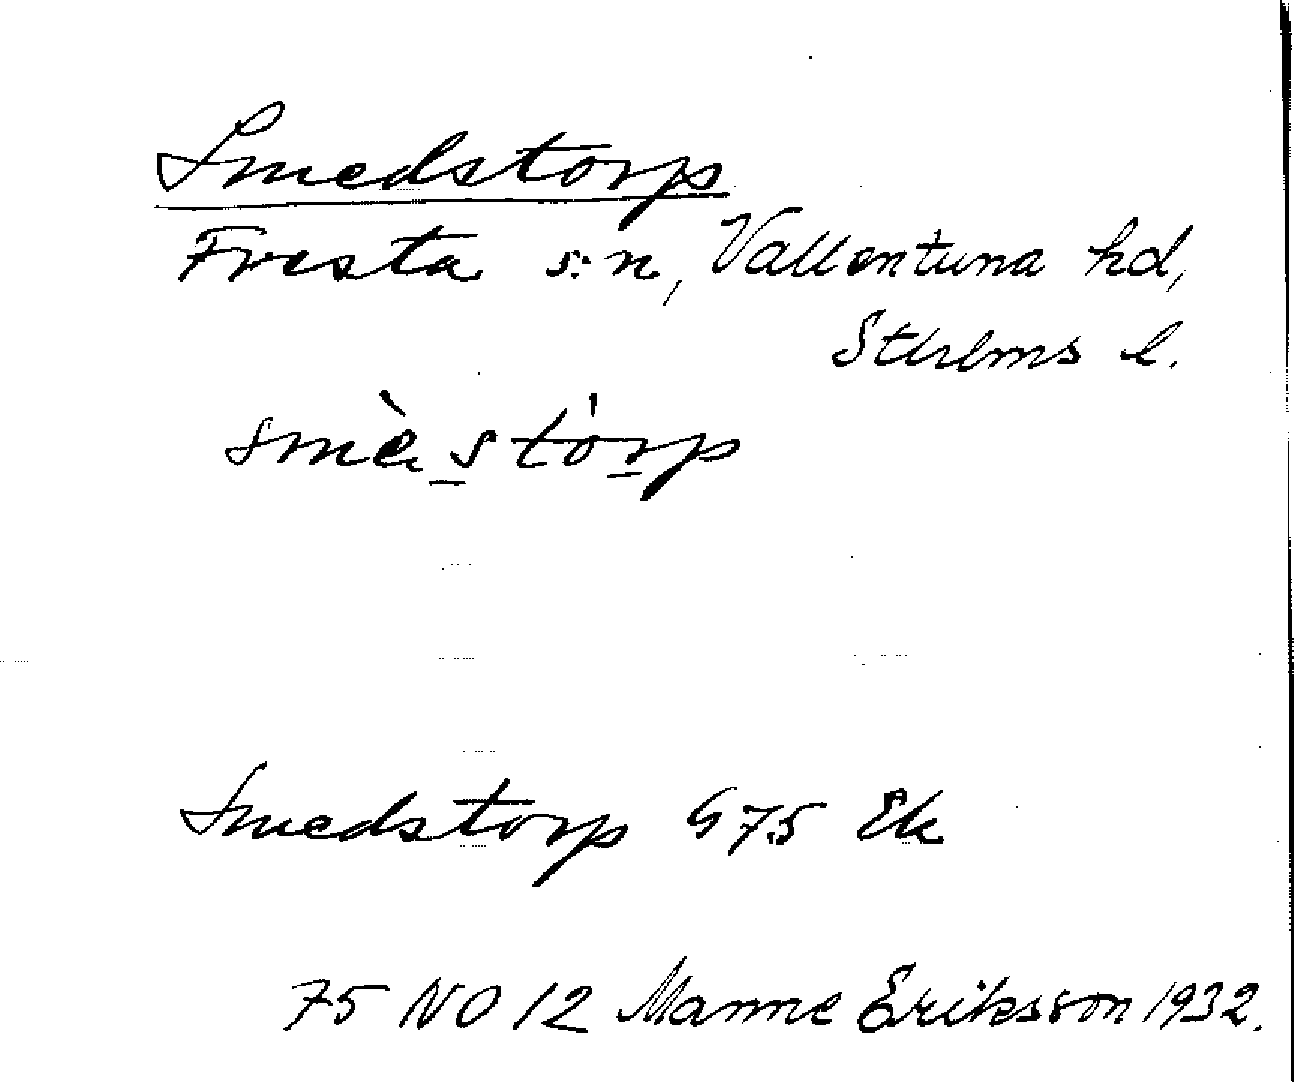 Smedstorp
Fresta s:n, Vallentuna hd,
Sthlms l.
smè̀stórp
Smedstorp G75 Ek
75 NO 12 Manne Eriksson 1932.